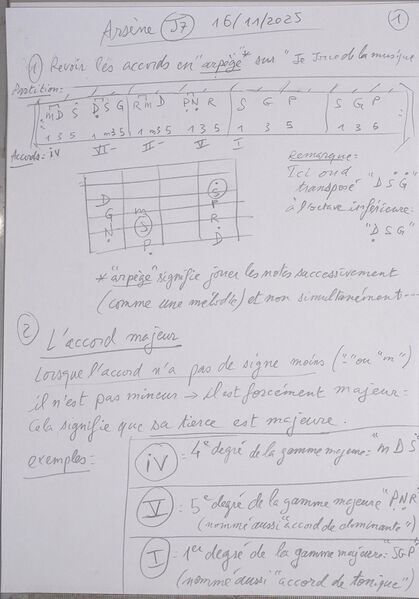 Arsène J7 16/11/2025 1
1 Revoir les accords en "arpège"* sur "Je Joue de la musique
Partition:
m D S D S G R m D P N R S G P S G P
1 3 5 1 m3 5 1 m3 5 1 3 5 1 3 5 1 3 5
Accords: IV VI- II- V I
Remarque:
Ici on a
transposé "D S G"
à l'octave inférieure:
"D S G"
D m S
G S P
N P R
D
* "arpège" signifie jouer les notes successivement
(comme une mélodie) et non simultanément---
2 L'accord majeur
Lorsque l'accord n'a pas de signe moins ("-" ou "m")
il n'est pas mineur → il est forcément majeur=
Cela signifie que sa tierce est majeure.
exemples=
IV = 4e degré de la gamme majeure= "m D S
V = 5e degré de la gamme majeure "P N R"
(nommé aussi "accord de dominante")
I = 1er degré de la gamme majeure= "S G P"
(nommé aussi "accord de tonique")